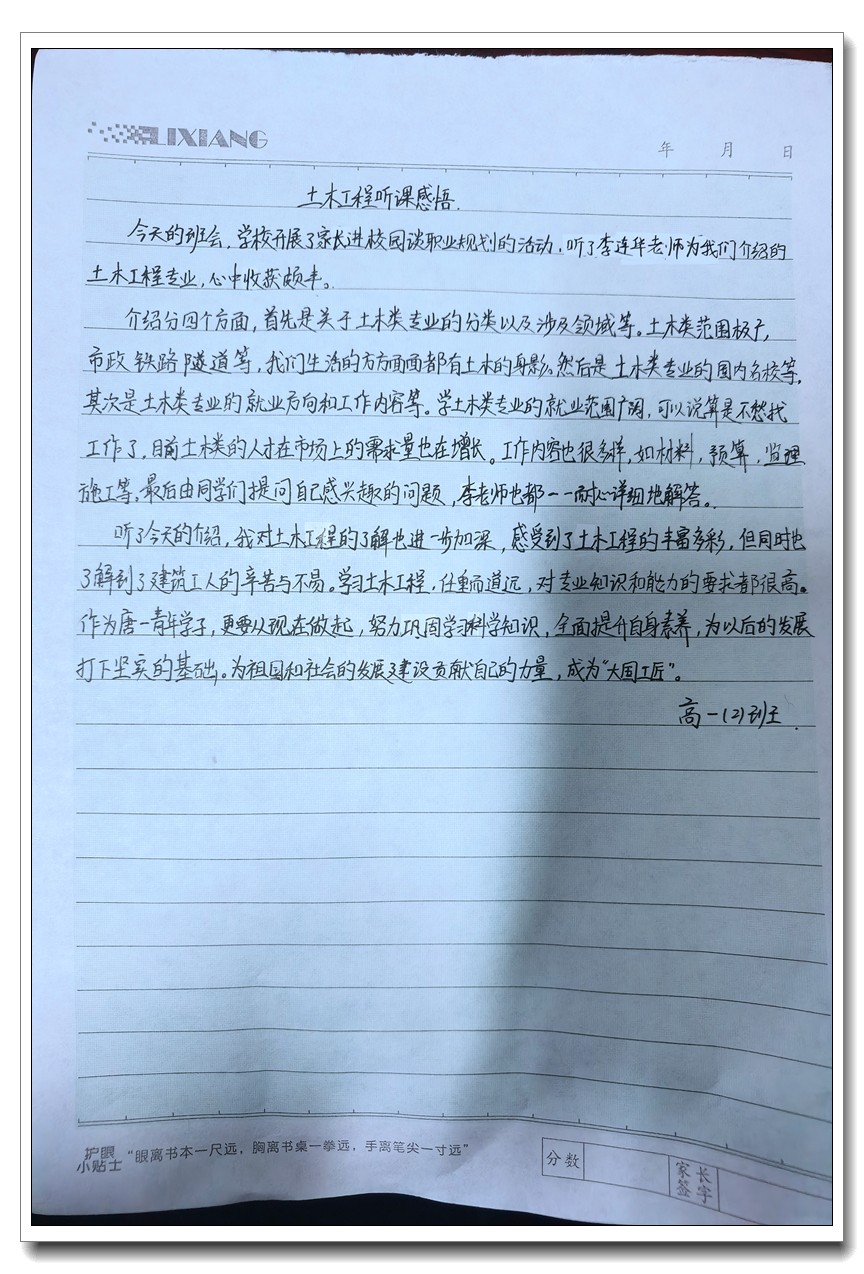 LIXIANG
年 月 日
土木工程听课感悟.
今天的班会，学校开展了家长进校园谈职业规划的活动，听了李连华老师为我们介绍的
土木工程专业，心中收获颇丰。
介绍分四个方面，首先是关于土木类专业的分类以及涉及领域等。土木类范围极广，
市政 铁路 隧道等，我们生活的方方面面都有土木的身影。然后是土木类专业的国内名校等。
其次是土木类专业的就业方向和工作内容等。学土木类专业的就业范围广阔，可以说算是不愁找
工作了，目前土木类的人才在市场上的需求量也在增长。工作内容也很多样，如材料，预算，监理
施工等，最后由同学们提问自己感兴趣的问题，李老师也都一一耐心详细地解答。
听了今天的介绍，我对土木工程的了解也进一步加深，感受到了土木工程的丰富多彩，但同时也
了解到了建筑工人的辛苦与不易。学习土木工程，任重而道远，对专业知识和能力的要求都很高。
作为唐一青年学子，更要从现在做起，努力巩固学习科学知识，全面提升自身素养，为以后的发展
打下坚实的基础，。为祖国和社会的发展建设贡献自己的力量，成为“大国工匠”。
高一(2)班王.
护眼
小贴士
“眼离书本一尺远，胸离书桌一拳远，手离笔尖一寸远”
分数
家长
签字